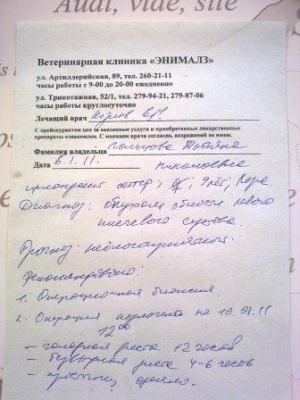 Audi, vide, sile
Ветеринарная клиника «ЭНИМАЛЗ»
ул. Артиллерийская, 89, тел. 260-21-11
часы работы с 9-00 до 20-00 ежедневно
ул. Трикотажная, 52/1, тел. 279-94-21, 279-87-06
часы работы круглосуточно
Лечащий врач
С прейскурантом цен за оказанные услуги и приобретенные лекарственные
препараты ознакомлен. С мнением врача согласен, возражений не имею.
Фамилия владельца Гольцова Татьяна
Дата 6.1.11. Николаевна
ирландский сеттер; 9 лет; Кора
Диагноз: опухоль области левого
плечевого сустава.
Прогноз: неблагоприятный.
Рекомендовано:
1. Операционная биопсия
2. Операция назначена на 10.01.11
12 00
– голодная диета 12 часов
– диета 4-6 часов
– простынь, одеяло.